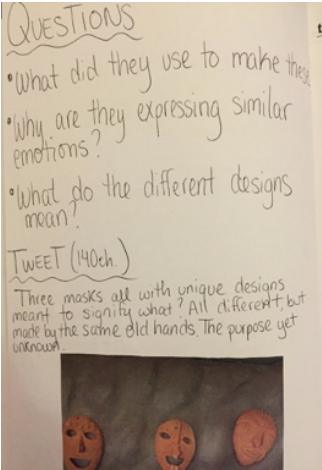 QUESTIONS
•What did they use to make these
•Why are they expressing similar
emotions?
•What do the different designs
mean?
TWEET (140ch.)
Three masks all with unique designs
meant to signify what? All different, but
made by the same old hands. The purpose yet
unknown.
t